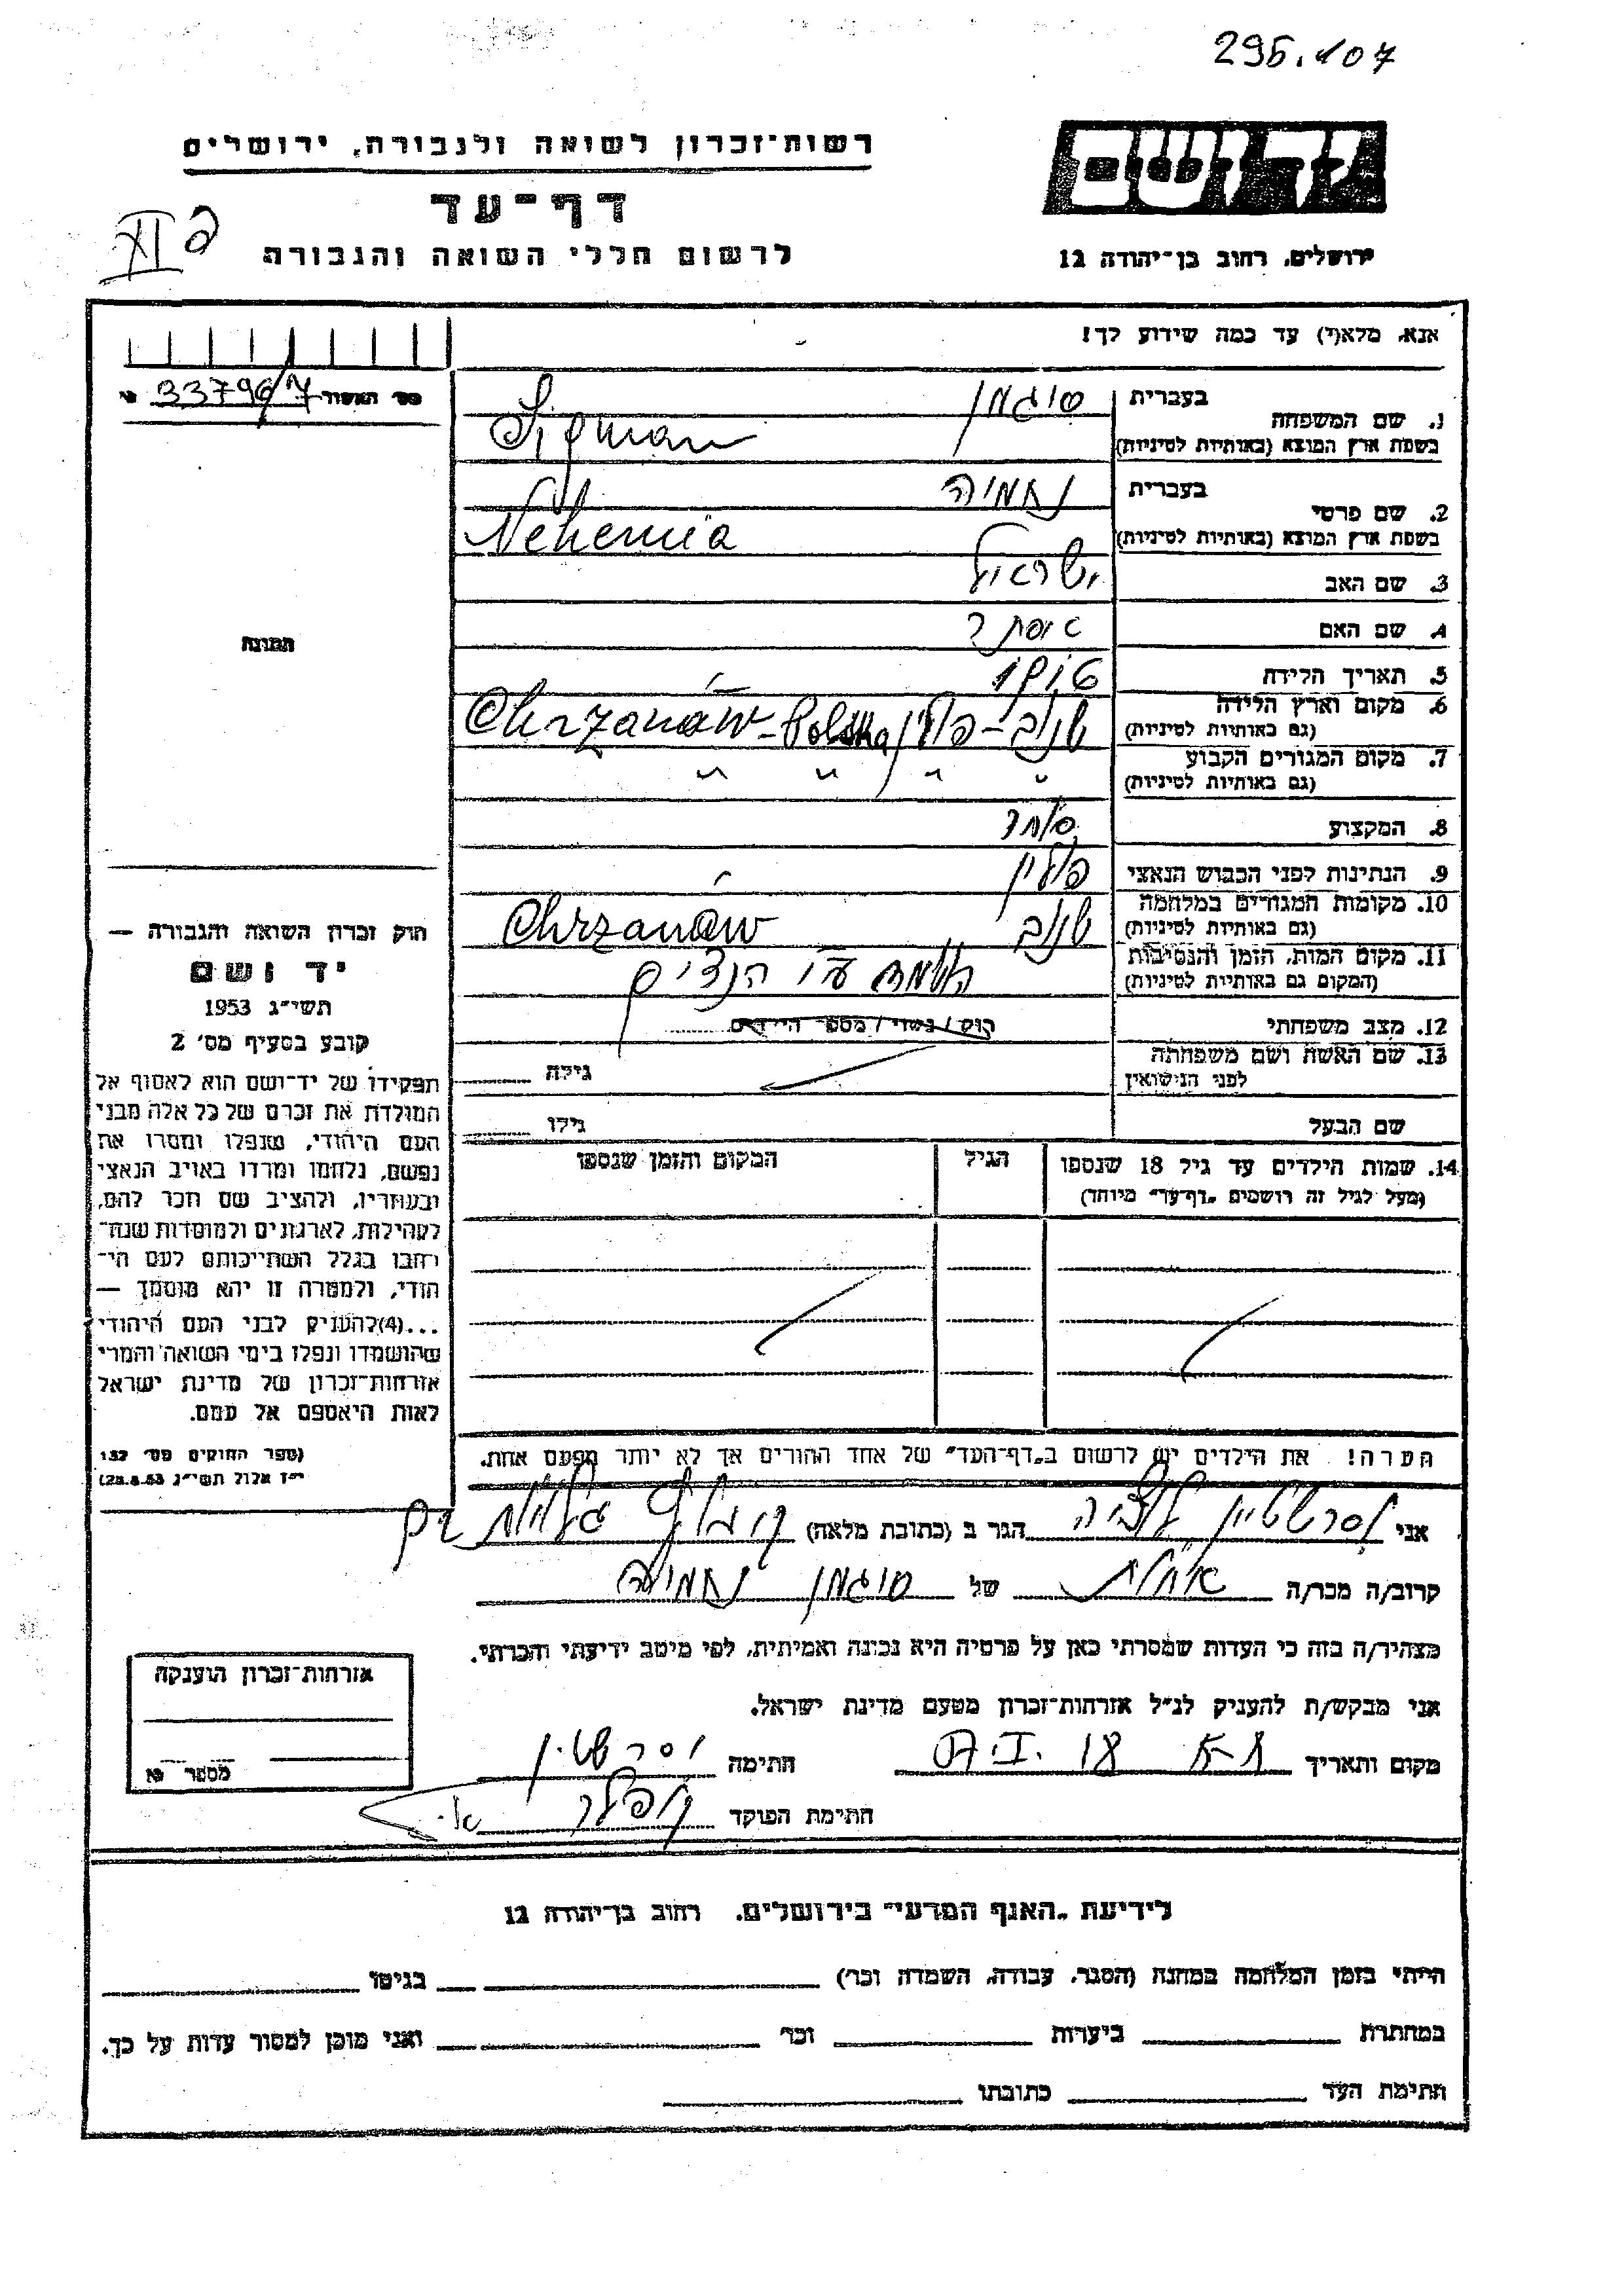 295.107
יד ושם
רשות־זכרון לשואה ולגבורה, ירושלים
דף־עד
לרשום חללי השואה והגבורה
ירושלים, רחוב בן־יהודה 12
אנא, מלא(י) עד כמה שידוע לך!
33796/7
1. שם המשפחה
בעברית
סיגמן
בשפת ארץ המוצא (באותיות לטיניות)
Sigman
2. שם פרטי
בעברית
נחמיה
בשפת ארץ המוצא (באותיות לטיניות)
Nehemia
3. שם האב
ישראל
4. שם האם
אסתר
5. תאריך הלידה
6. מקום וארץ הלידה
(גם באותיות לטיניות)
פולין Chrzanów - Polska
7. מקום המגורים הקבוע
(גם באותיות לטיניות)
" " " "
8. המקצוע
סוחר
9. הנתינות לפני הכבוש הנאצי
פולין
10. מקומות המגורים במלחמה
(גם באותיות לטיניות)
Chrzanów
11. מקום המות, הזמן והנסיבות
(המקום גם באותיות לטיניות)
הושמד ע״י הנצים
12. מצב משפחתי
רוק / נשוי / מספר הילדים
13. שם האשה ושם משפחתה
לפני הנישואין
גילה
שם הבעל
גילו
14. שמות הילדים עד גיל 18 שנספו
(מעל לגיל זה רושמים „דף־עד״ מיוחד)
הגיל
המקום והזמן שנספו
הערה! את הילדים יש לרשום ב„דף־העד״ של אחד ההורים אך לא יותר מפעם אחת.
תמונה
חוק זכרון השואה והגבורה —
יד ושם
תשי״ג 1953
קובע בסעיף מס׳ 2
תפקידו של יד־ושם הוא לאסוף אל
המולדת את זכרם של כל אלה מבני
העם היהודי, שנפלו ומסרו את
נפשם, נלחמו ומרדו באויב הנאצי
ובעוזריו, ולהציב שם וזכר להם,
לקהילות, לארגונים ולמוסדות שנח־
רבו בגלל השתייכותם לעם הי־
הודי, ולמטרה זו יהא מוסמך —
...(4) להעניק לבני העם היהודי
שהושמדו ונפלו בימי השואה והמרי
אזרחות־זכרון של מדינת ישראל
לאות היאספם אל עמם.
(ספר החוקים מס׳ 132
י״ז אלול תשי״ג 28.8.53)
אני
הגר ב (כתובת מלאה)
קרוב/ה מכר/ה
של סיגמן נחמיה
מצהיר/ה בזה כי העדות שמסרתי כאן על פרטיה היא נכונה ואמיתית, לפי מיטב ידיעתי והכרתי.
אני מבקש/ת להעניק לנ״ל אזרחות־זכרון מטעם מדינת ישראל.
מקום ותאריך
חתימה
חתימת הפוקד
אזרחות־זכרון הוענקה
מספר
לידיעת „האגף המדעי״ בירושלים, רחוב בן־יהודה 12
הייתי בזמן המלחמה במחנה (הסגר, עבודה, השמדה וכו׳)
בגיטו
במחתרת
ביערות
וכו׳
ואני מוכן למסור עדות על כך.
חתימת העד
כתובתו